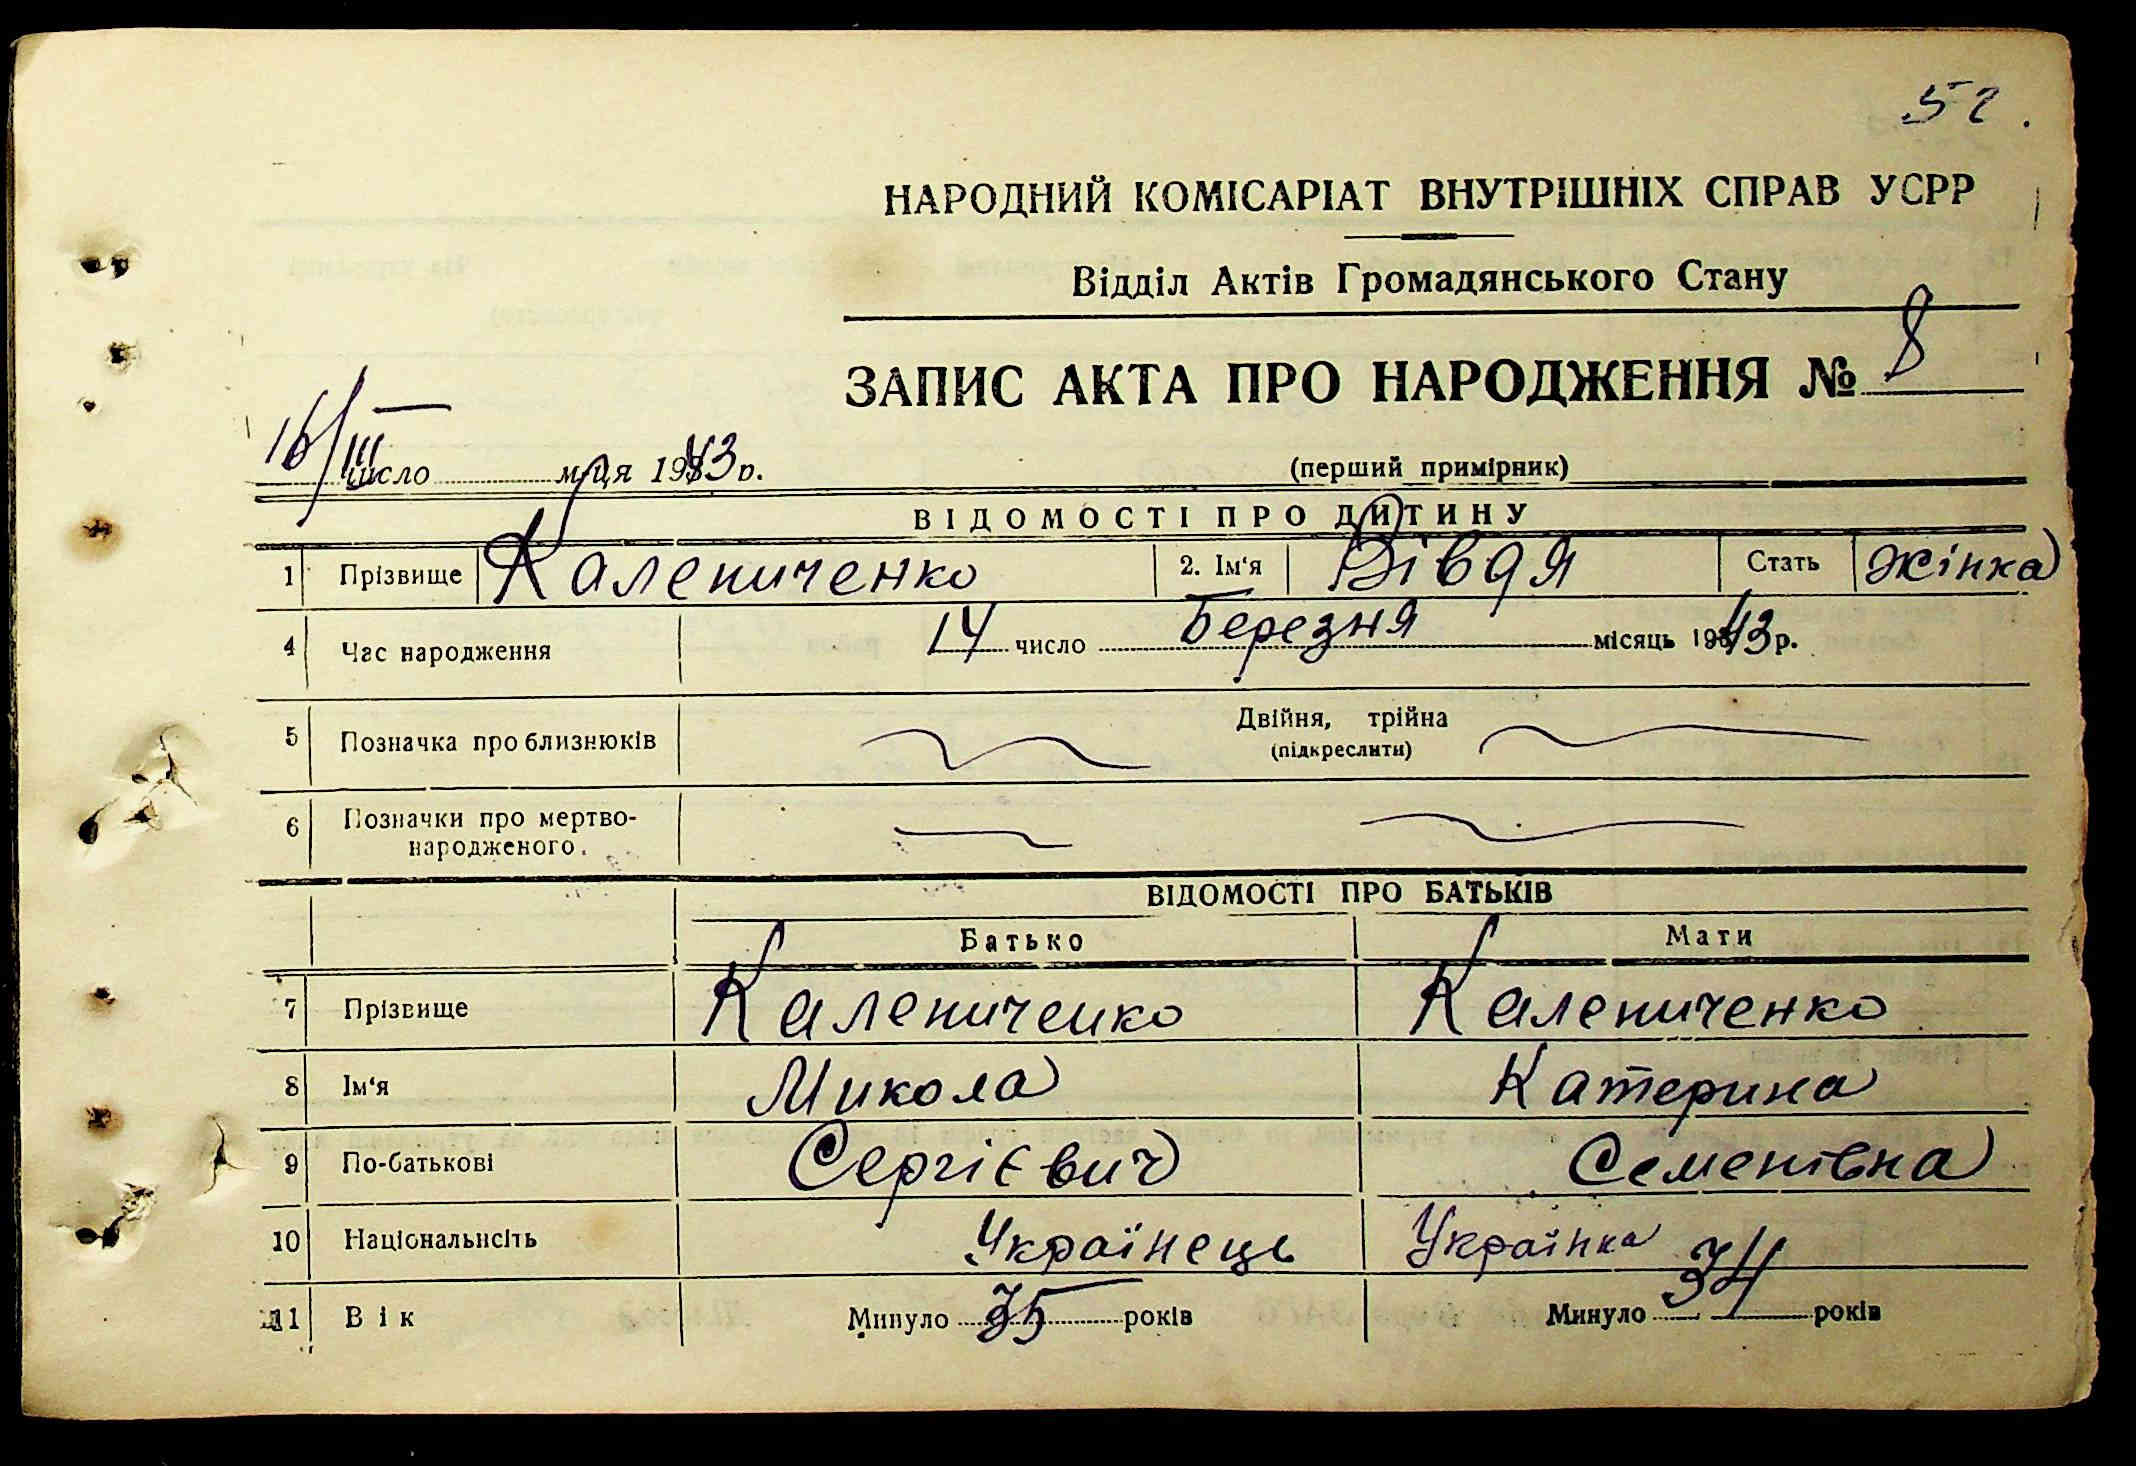 52.
НАРОДНИЙ КОМІСАРІАТ ВНУТРІШНІХ СПРАВ УСРР
Відділ Актів Громадянського Стану
ЗАПИС АКТА ПРО НАРОДЖЕННЯ № 8
16/III число м-ця 1943 р. (перший примірник)
ВІДОМОСТІ ПРО ДИТИНУ
1 Прізвище Калениченко 2. Ім'я Вівдя Стать Жінка
4 Час народження 14 число Березня місяць 1943 р.
5 Позначка про близнюків Двійня, трійна
(підкреслити)
6 Позначки про мертво-
народженого.
ВІДОМОСТІ ПРО БАТЬКІВ
Батько Мати
7 Прізвище Калениченко Калениченко
8 Ім'я Микола Катерина
9 По-батькові Сергієвич Семенівна
10 Національність Українець Українка
11 Вік Минуло 35 років Минуло 34 років